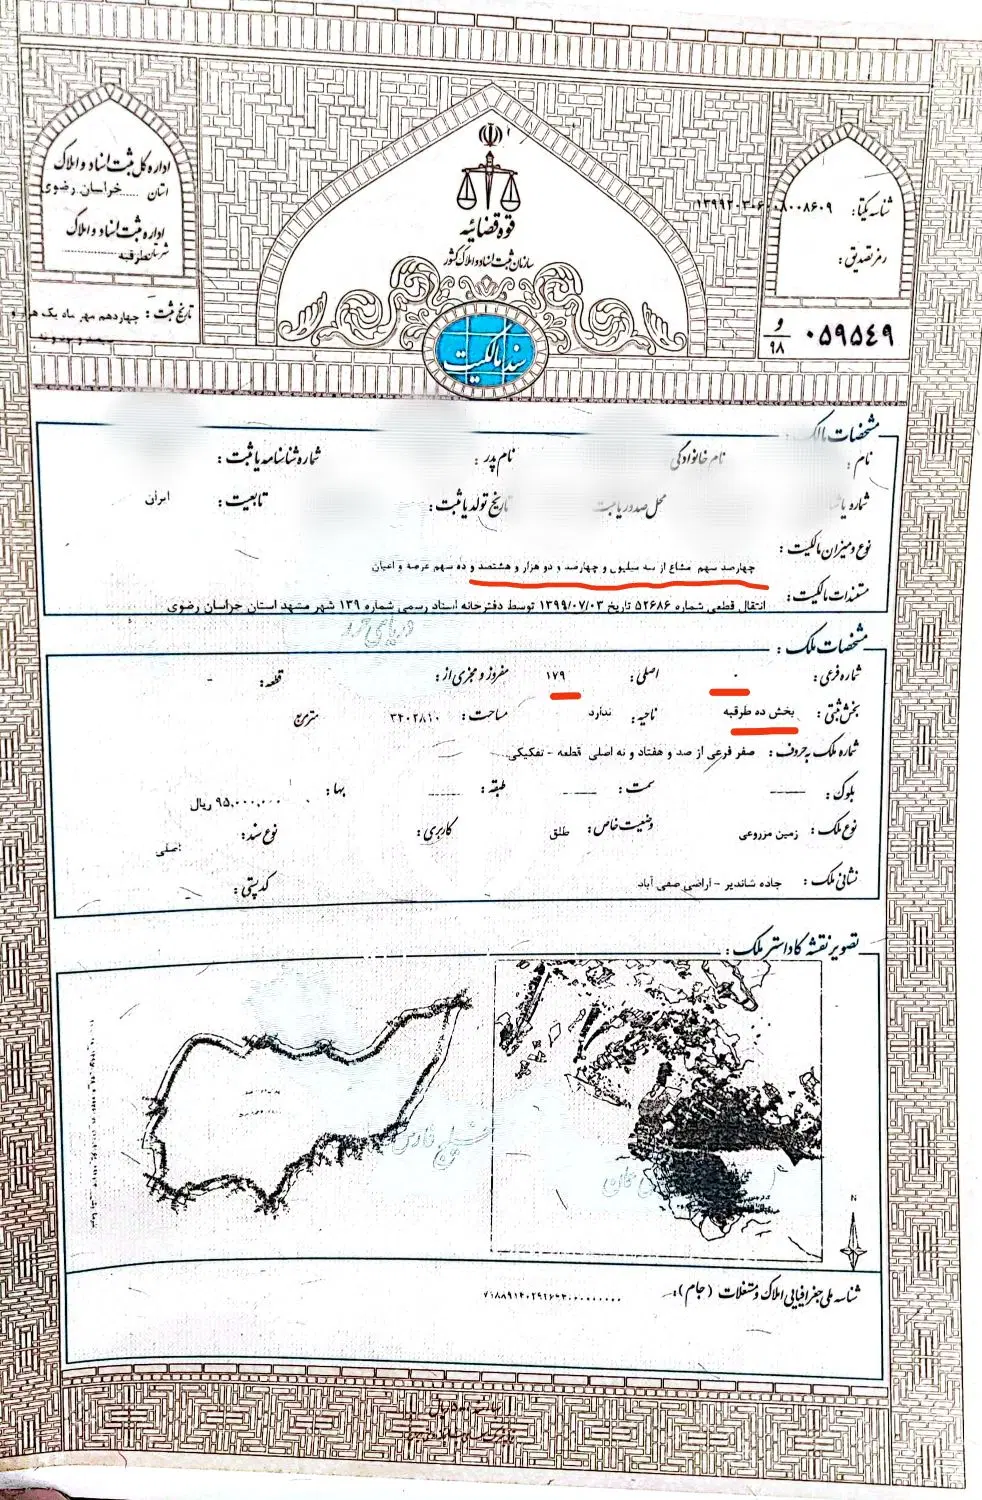 اداره کل ثبت اسناد و املاک
استان ...... خراسان رضوی
اداره ثبت اسناد و املاک
شهرستان طرقبه
تاریخ ثبت : چهاردهم مهر ماه یک هزار و
قوه قضائیه
سازمان ثبت اسناد و املاک کشور
سند مالکیت
شناسه یکتا:
رمز تصدیق :
۰۵۹۵۴۹ و/۹۸
مشخصات مالک :
نام : نام خانوادگی نام پدر : شماره شناسنامه یا ثبت :
شماره محل صدور یا ثبت تاریخ تولد یا ثبت : تابعیت : ایران
نوع و میزان مالکیت :
چهارصد سهم مشاع از سه میلیون و چهارصد و دو هزار و هشتصد و ده سهم عرصه و اعیان
مستندات مالکیت :
انتقال قطعی شماره ۵۲۶۸۶ تاریخ ۱۳۹۹/۰۷/۰۳ توسط دفترخانه اسناد رسمی شماره ۱۳۹ شهر مشهد استان خراسان رضوی
دریای خزر
مشخصات ملک :
شماره فرعی : ۰ اصلی : ۱۷۹ مفروز و مجزی از : قطعه : -
بخش ثبتی : بخش ده طرقبه ناحیه : ندارد مساحت : ۳۴۰۲۸۱۰ مترمربع
شماره ملک به حروف : صفر فرعی از صد و هفتاد و نه اصلی قطعه - تفکیکی
بلوک : سمت : طبقه : بها : ۹۵,۰۰۰,۰۰۰ ریال
نوع ملک : زمین مزروعی وضعیت خاص : طلق کاربری : نوع سند : اصلی
نشانی ملک : جاده شاندیز - اراضی صفی آباد کد پستی : -
تصویر نقشه کاداستر ملک :
خلیج فارس
N
شناسه ملی جغرافیایی املاک و مستغلات (جام) :